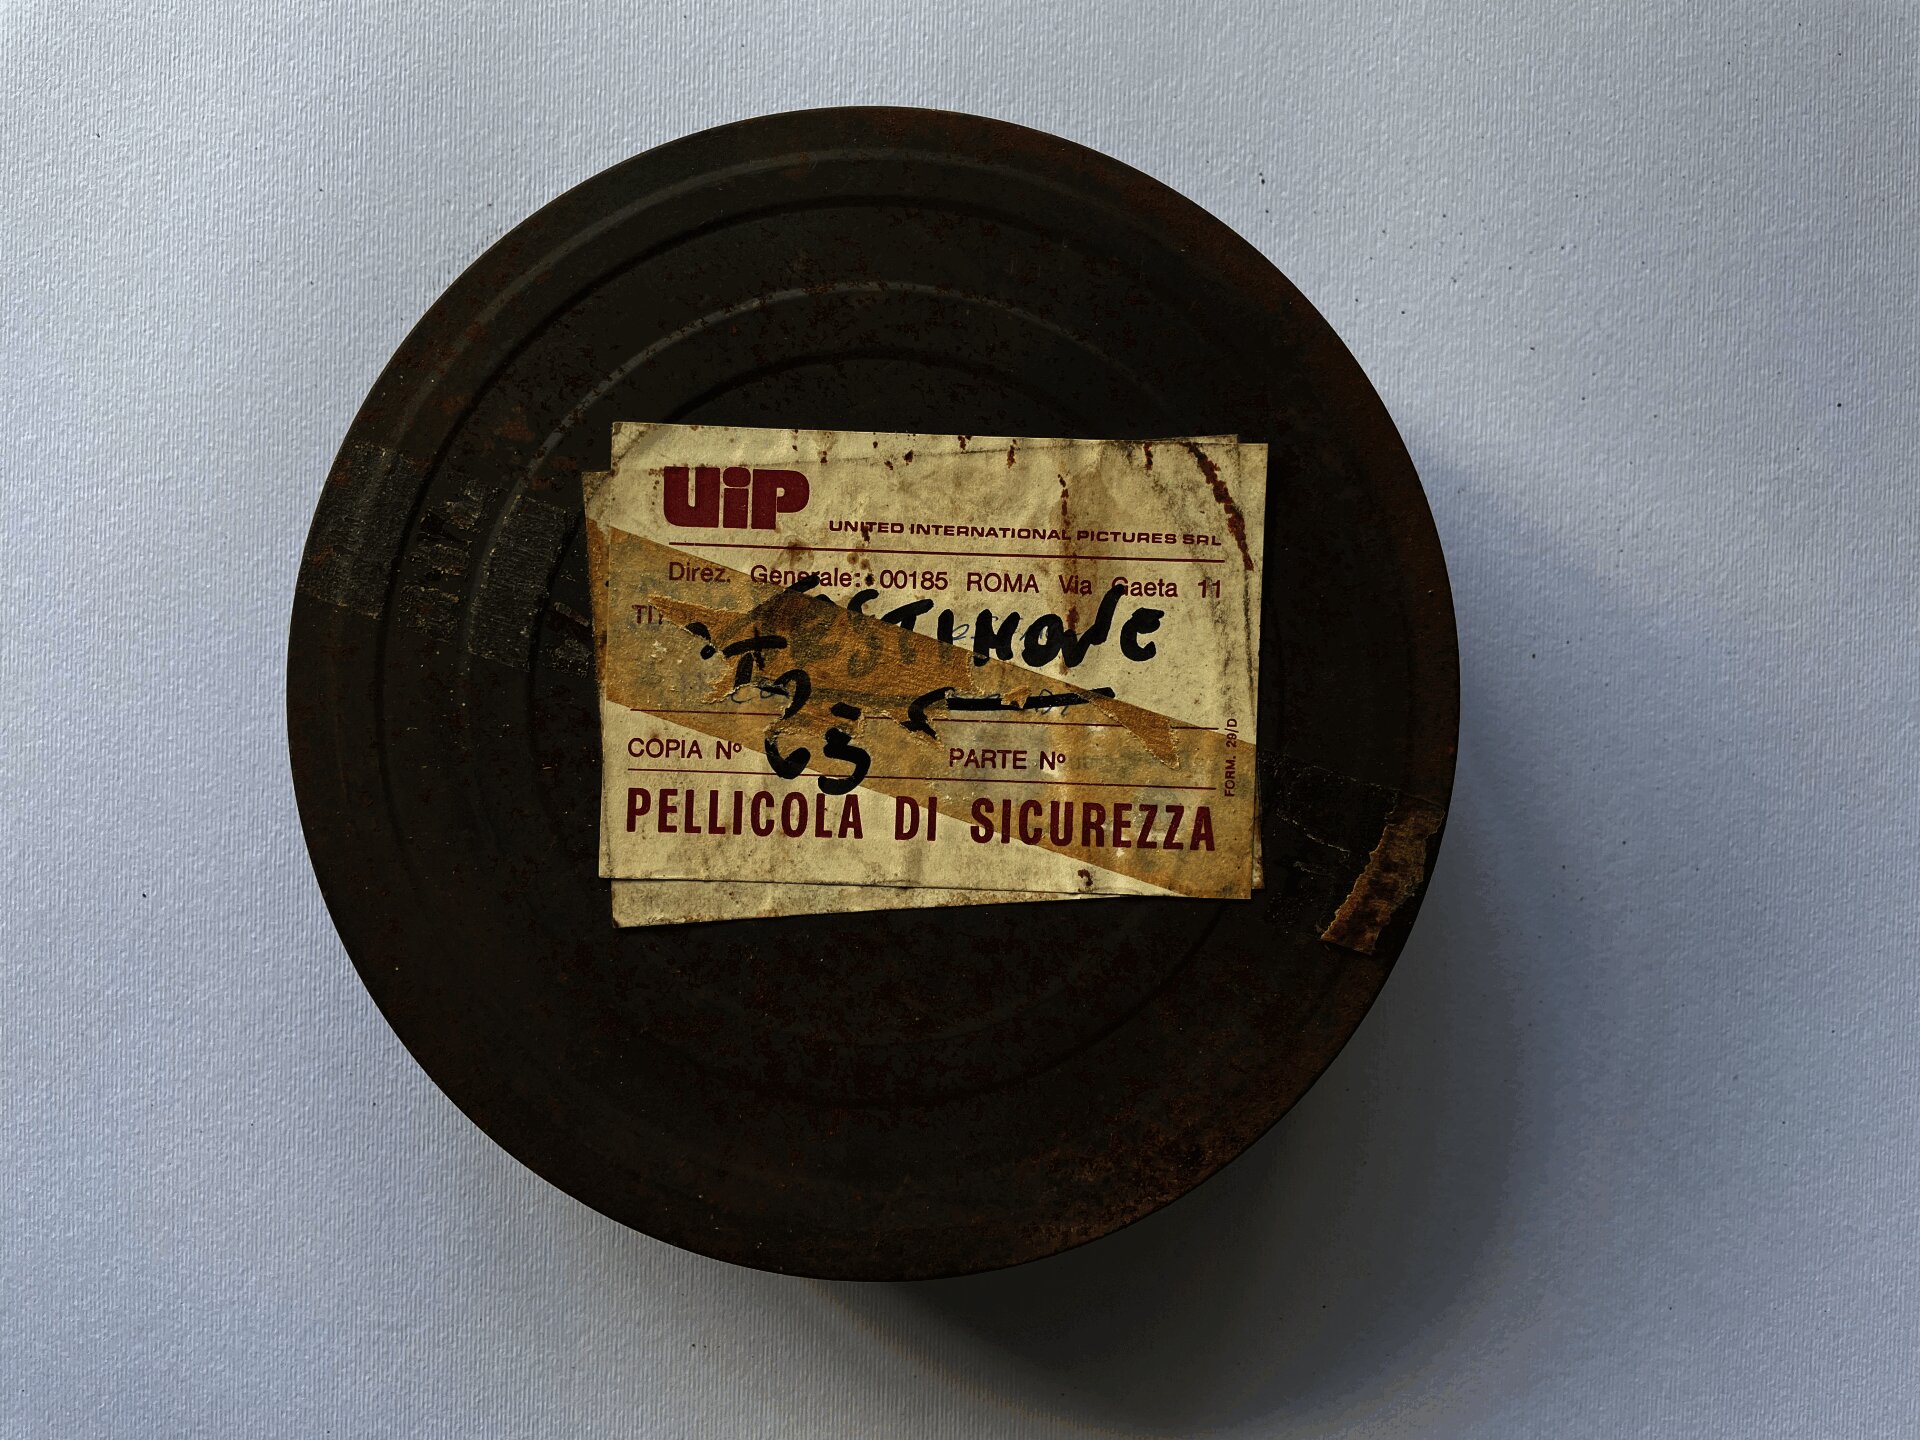 UiP
UNITED INTERNATIONAL PICTURES SRL
Direz. Generale: 00185 ROMA Via Gaeta 11
COPIA Nº 63 PARTE Nº
FORM. 29/D
PELLICOLA DI SICUREZZA